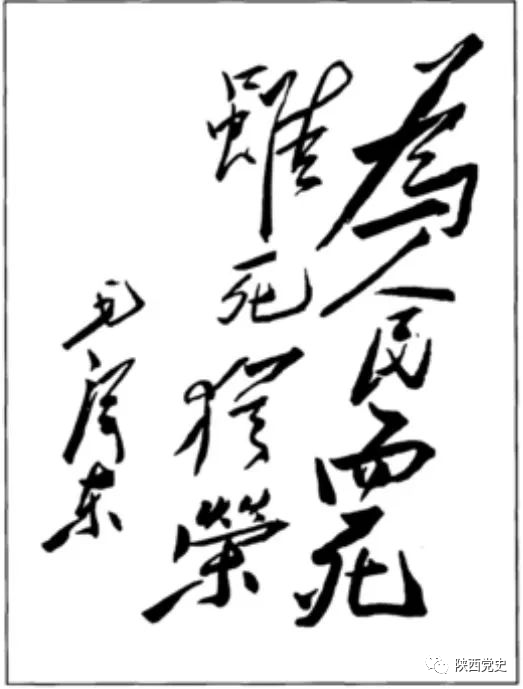 為人民而死
雖死猶榮
毛澤东
陕西党史